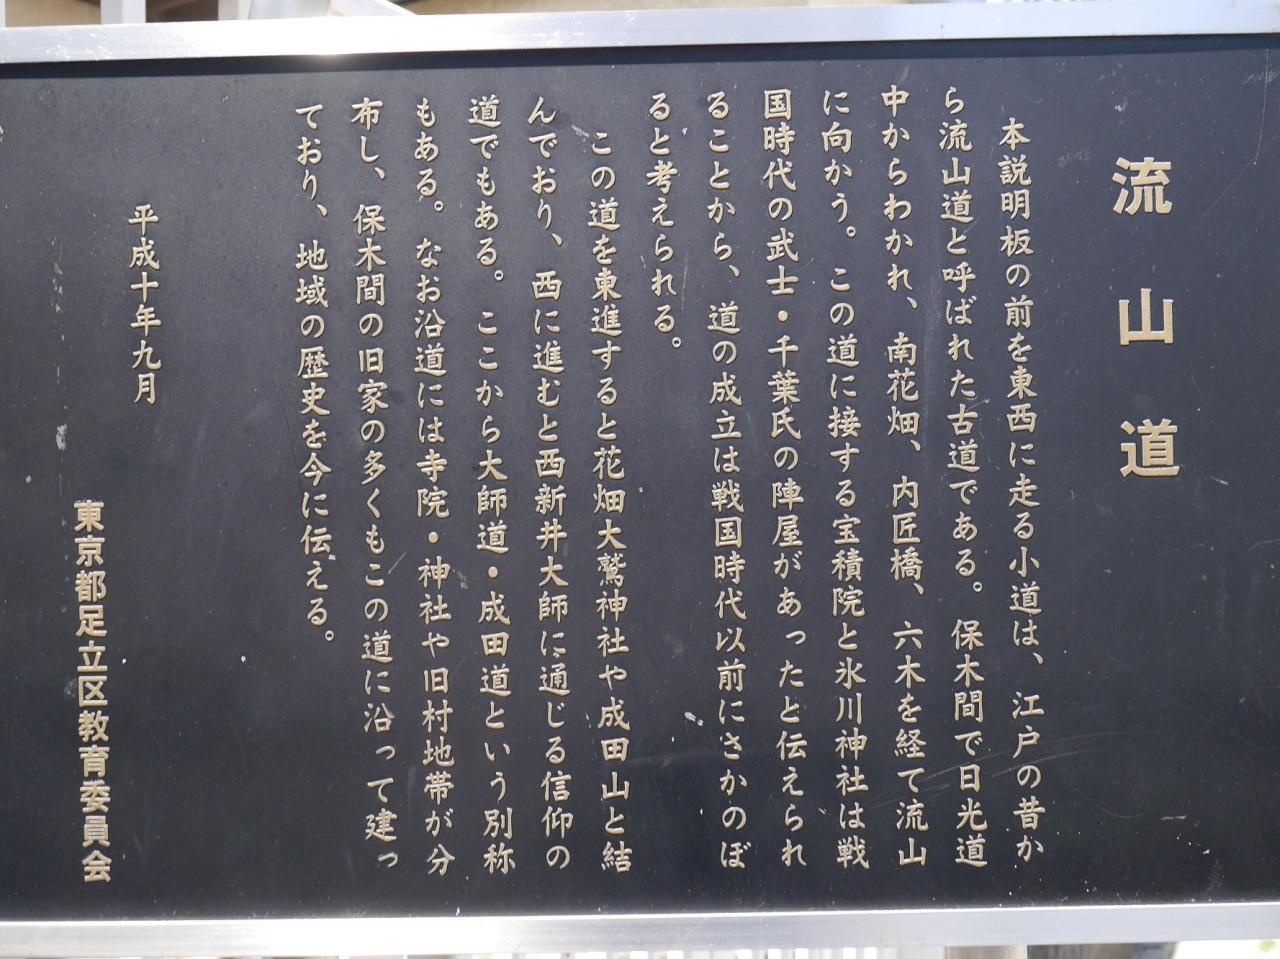 流山道
本説明板の前を東西に走る小道は、江戸の昔か
ら流山道と呼ばれた古道である。保木間で日光道
中からわかれ、南花畑、内匠橋、六木を経て流山
に向かう。この道に接する宝積院と氷川神社は戦
国時代の武士・千葉氏の陣屋があったと伝えられ
ることから、道の成立は戦国時代以前にさかのぼ
ると考えられる。
この道を東進すると花畑大鷲神社や成田山と結
んでおり、西に進むと西新井大師に通じる信仰の
道でもある。ここから大師道・成田道という別称
もある。なお沿道には寺院・神社や旧村地帯が分
布し、保木間の旧家の多くもこの道に沿って建っ
ており、地域の歴史を今に伝える。
平成十年九月
東京都足立区教育委員会